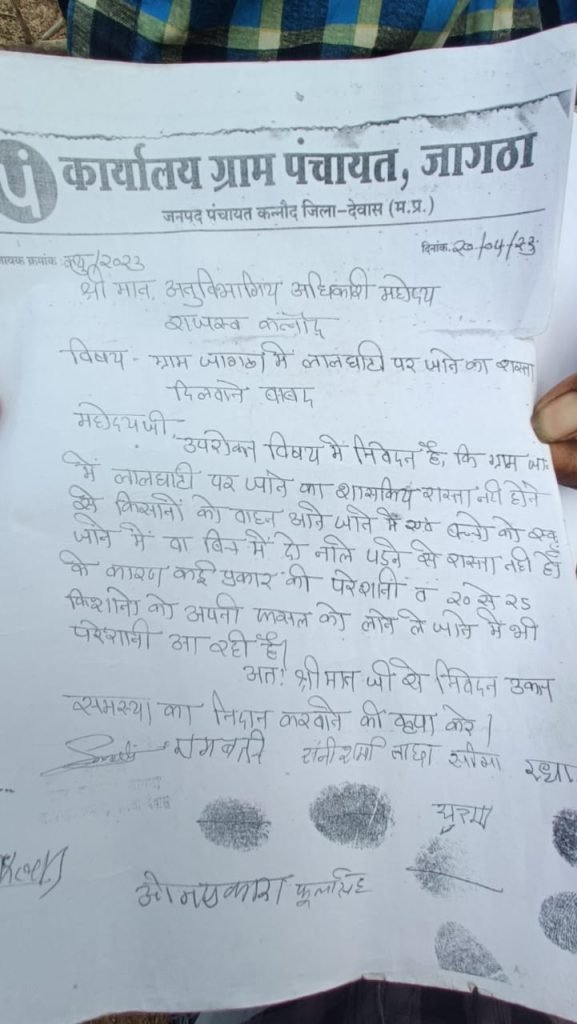 पं कार्यालय ग्राम पंचायत, जागठा
जनपद पंचायत कन्नौद जिला-देवास (म.प्र.)
क्रमांक क्यू/२०२३
दिनांक. २०/०४/२३
श्री मान. अनुविभागिय अधिकारी महोदय
राजस्व कन्नौद
विषय - ग्राम जागठा में लालघाटी पर जाने का रास्ता
दिलवाने बाबद
महोदयजी -
उपरोक्त विषय में निवेदन है, कि ग्राम जा
में लालघाटी पर जाने का शासकिय रास्ता नही होने
से किसानों को वाहन आने जाने में को
जाने में वा बिच में दो नाले पड़ने से रास्ता नही हो
के कारण कई प्रकार की परेशानी व २० से २५
किशानो को अपनी फसल को लाने ले जाने में भी
परेशानी आ रही है।
अतः श्रीमान जी से निवेदन उक्त
समस्या का निदान करवाने की कृपा करे।
रामवती सीमा राधा
ओमप्रकाश फूलसिंह